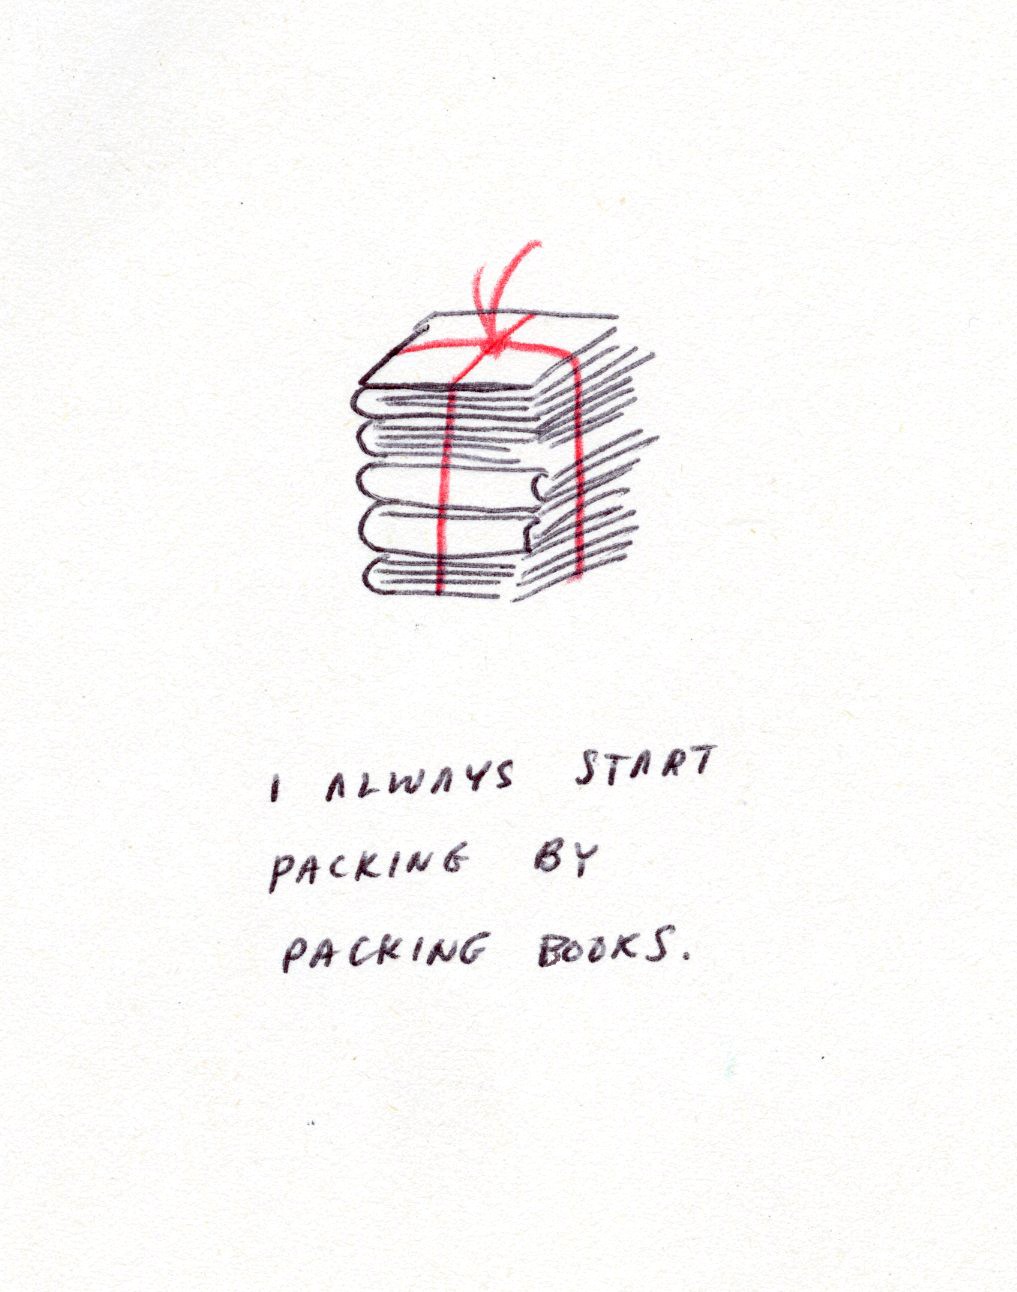 I ALWAYS START
PACKING BY
PACKING BOOKS.